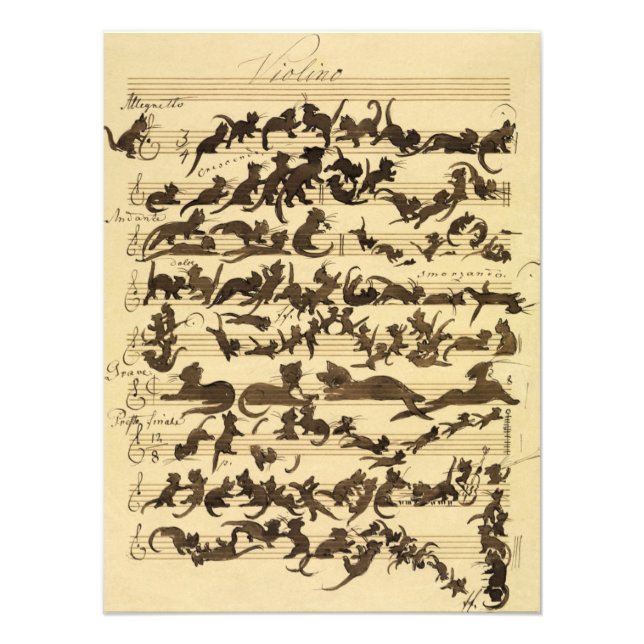 Violino
Allegretto
3/4
crescendo
Andante
dolce
smorzando.
ff.
Grave
Presto finale
12/8
p.
ff.